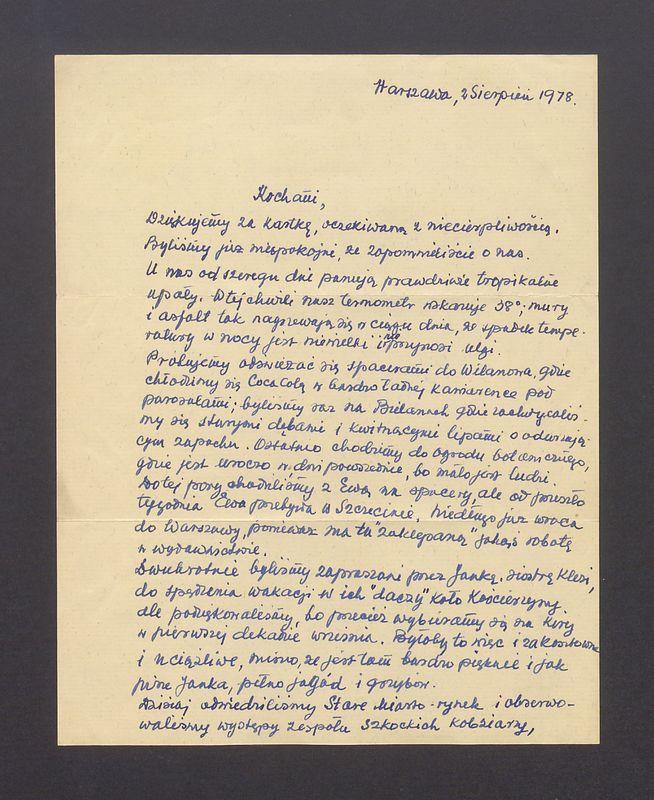 Warszawa, 2 Sierpień 1978.
Kochani,
Dziękujemy za kartkę, oczekiwaną z niecierpliwością.
Byliśmy już niespokojni, że zapomnieliście o nas.
U nas od szeregu dni panują prawdziwie tropikalne
upały. W tej chwili nasz termometr wskazuje 38°; mury
i asfalt tak nagrzewają się w ciągu dnia, że spadek tempe-
ratury w nocy jest niewielki i nie przynosi ulgi.
Próbujemy odświeżać się spacerami do Wilanowa, gdzie
chłodzimy się Coca Colą w bardzo ładnej kawiarence pod
parasolami; byliśmy raz na Bielanach gdzie zachwycaliś-
my się starymi dębami i kwitnącymi lipami o odurzają-
cym zapachu. Ostatnio chodzimy do ogrodu botanicznego,
gdzie jest uroczo w dni powszednie, bo mało jest ludzi.
Do tej pory chodziliśmy z Ewą na spacery, ale od przeszło
tygodnia Ewa przebywa w Szczecinie. Niedługo już wraca
do Warszawy, ponieważ ma tu "zaklepaną" jakąś robotę
w wydawnictwie.
Dwukrotnie byliśmy zapraszani przez Jankę, siostrę
do spędzenia wakacji w ich "daczy" koło Kościerzyny
ale podziękowaliśmy, bo przecież wybieramy się na
w pierwszej dekadzie września. Byłoby to więc i za kosztowne
i uciążliwe, mimo, że jest tam bardzo pięknie i jak
pisze Janka, pełno jagód i grzybów.
Dzisiaj odwiedziliśmy Stare Miasto - rynek i obserwo-
waliśmy występy zespołu Szkockich Kobziarzy,